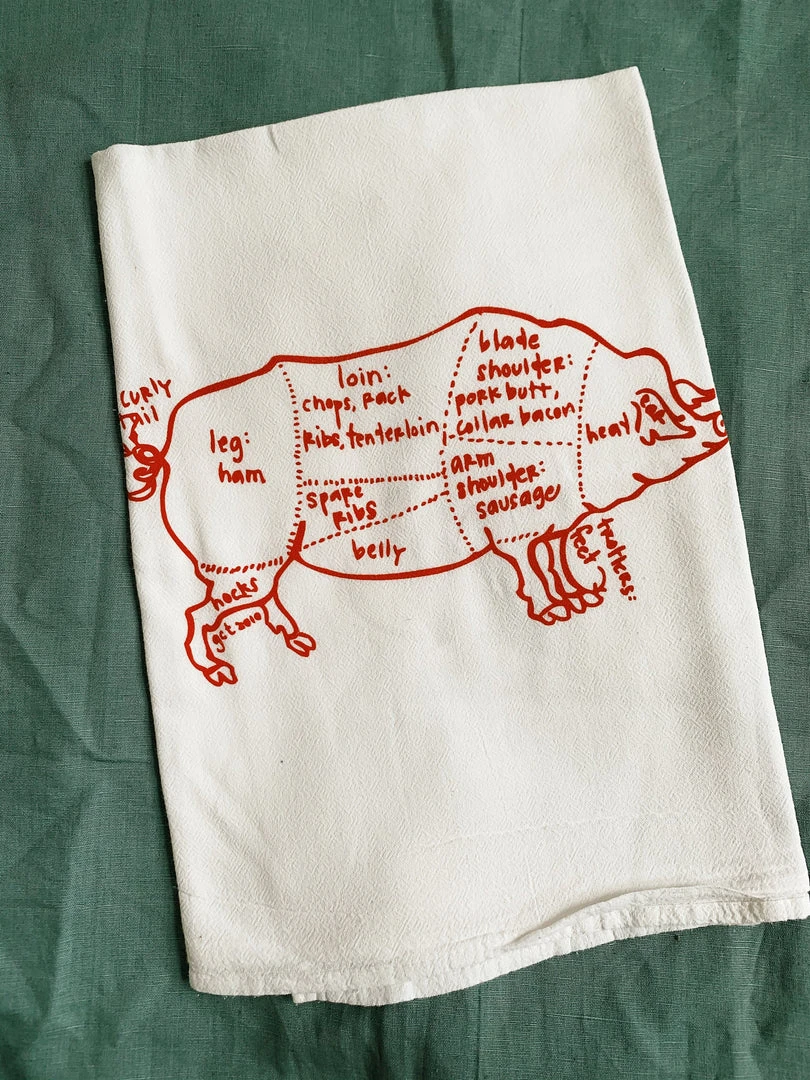 curly
tail
leg:
ham
loin:
chops, rack
ribs, tenterloin
spare
ribs
belly
blade
shoulder:
pork butt,
collar bacon
arm
shoulder:
sausage
head
trotters:
feet
hocks
gct 2010